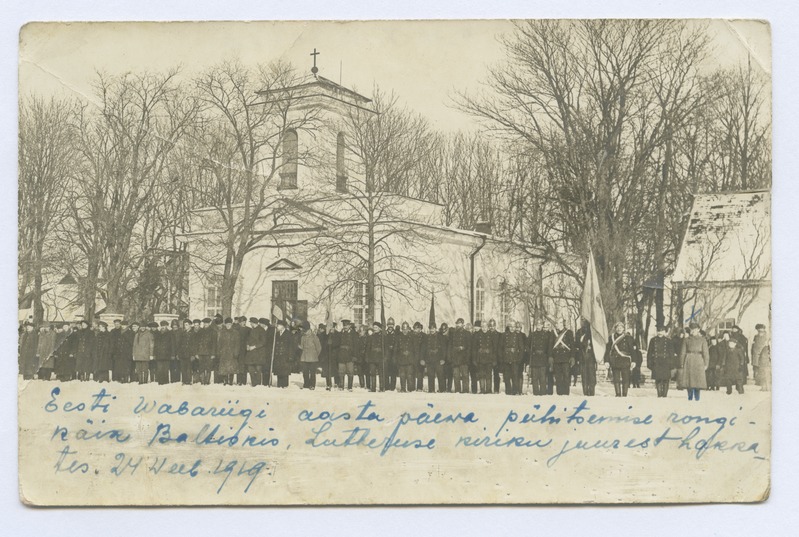 Eesti Wabariigi aasta päewa pühitsemise rongi-
käik Baltiskis, Lutheruse kiriku juurest hakka-
tes. 24 Weeb. 1919.